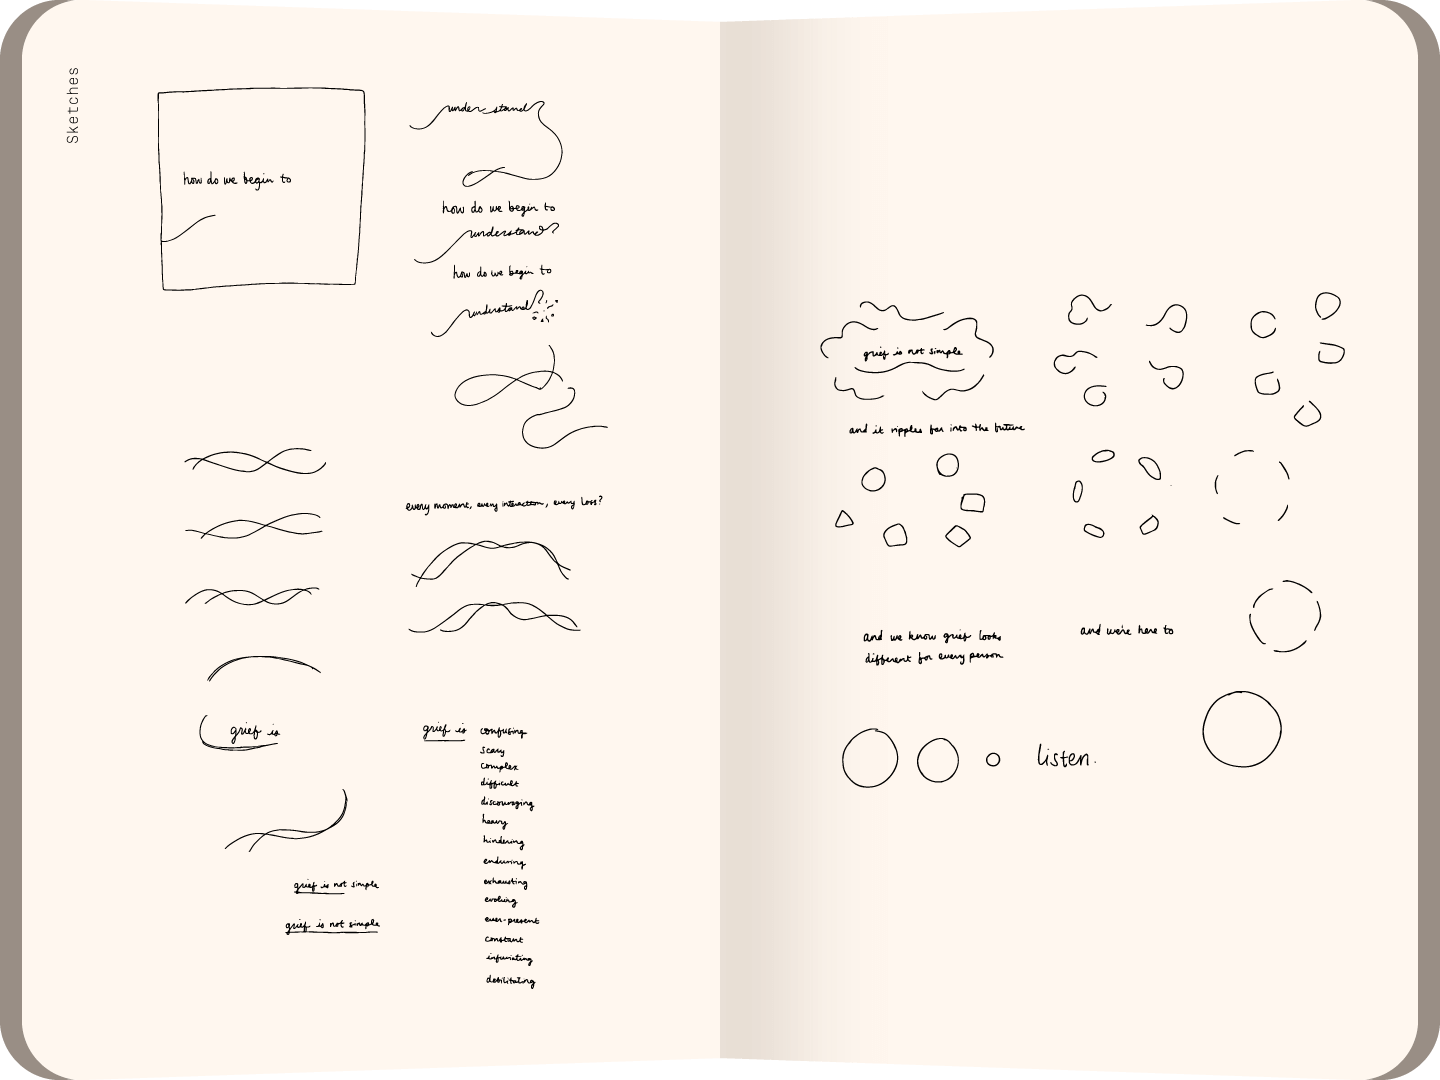 Sketches
how do we begin to
understand
how do we begin to
understand?
how do we begin to
understand?
every moment, every interaction, every loss?
grief is
grief is not simple
grief is not simple
grief is confusing
scary
complex
difficult
discouraging
heavy
hindering
enduring
exhausting
evolving
ever-present
constant
infuriating
debilitating
grief is not simple
and it ripples far into the future
and we know grief looks
different for every person
and we're here to
listen.